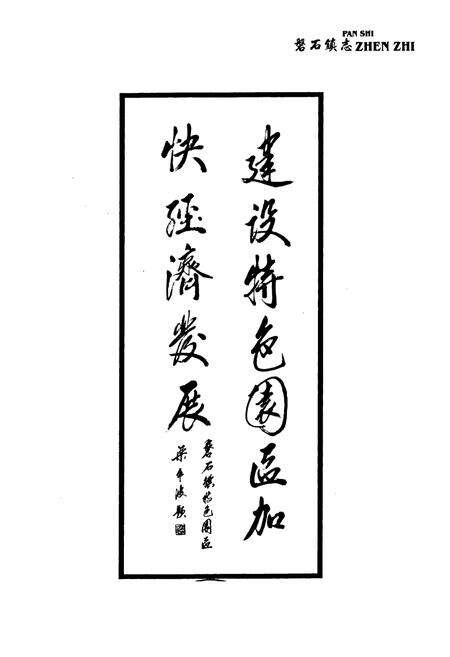 PAN SHI
磐石镇志 ZHEN ZHI
建设特色園区加
快經濟發展
磐石镇特色園区
梁平波题